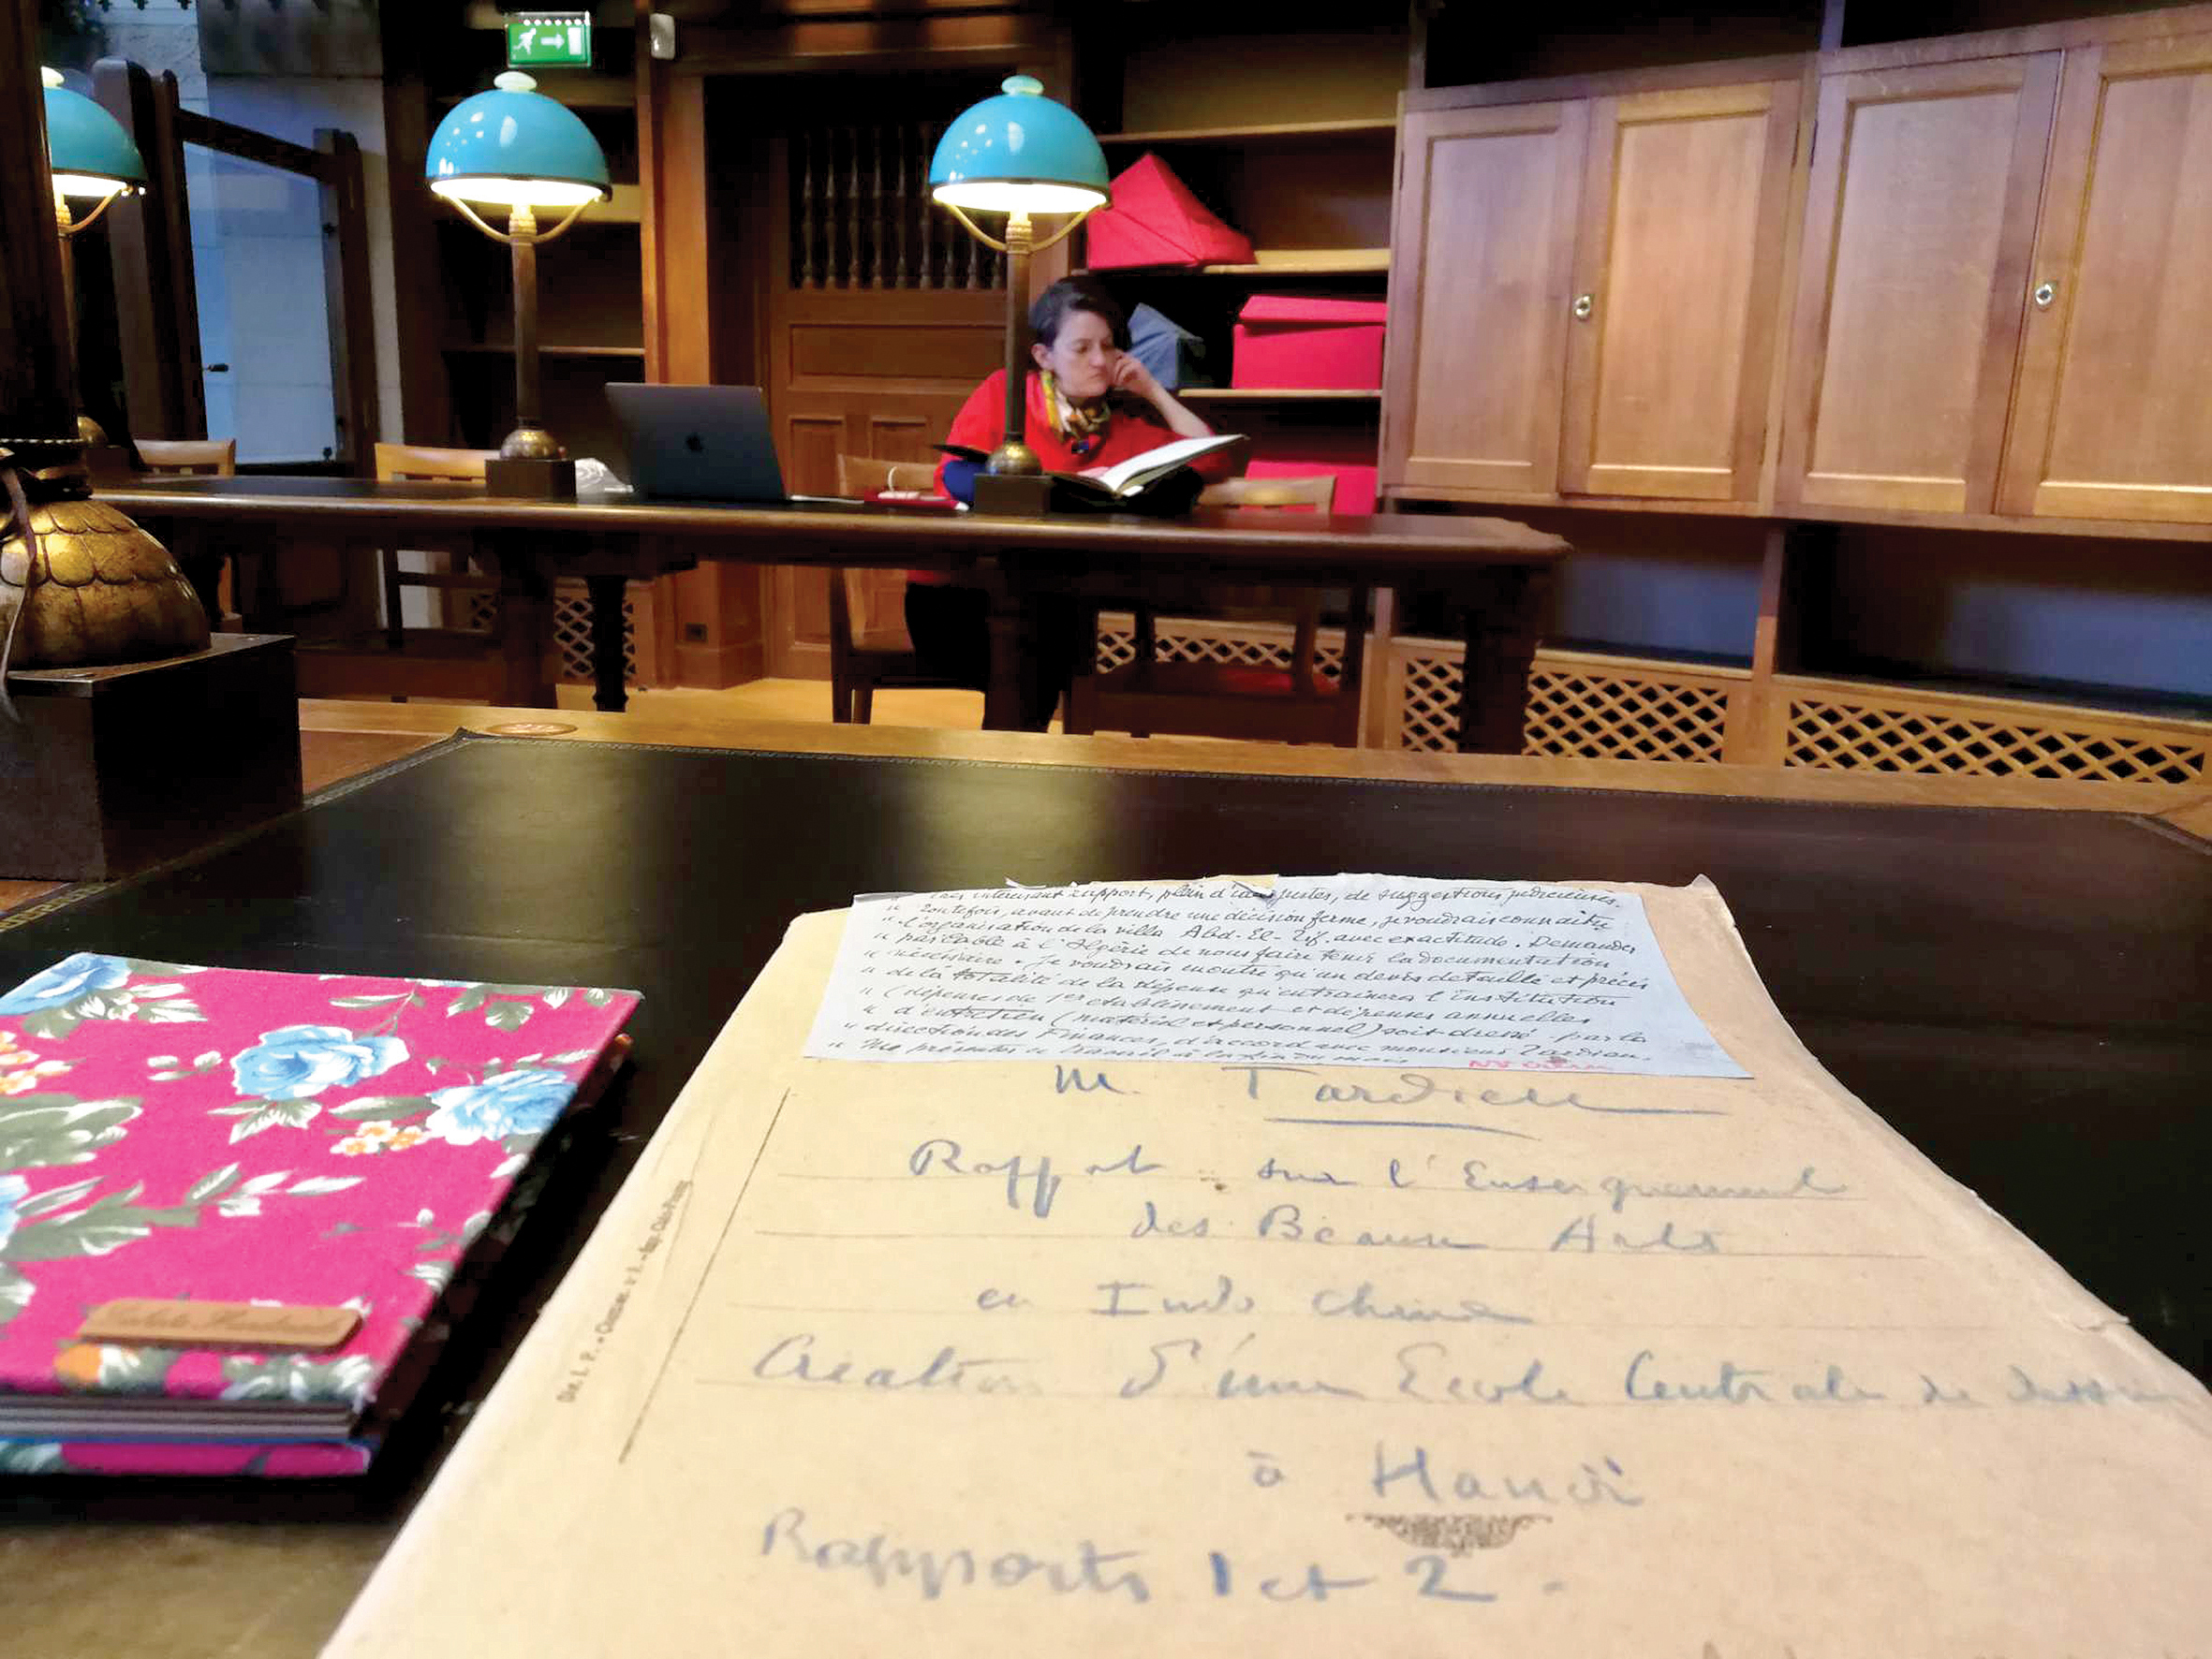 très intéressant rapport, plein d'idées justes, de suggestions judicieuses.
" Toutefois, avant de prendre une décision ferme, je voudrais connaître
" l'organisation de la villa Abd-El-Tif. avec exactitude. Demander
" par cable à l'Algérie de nous faire tenir la documentation
" nécessaire. je voudrais qu'un devis détaillé et précis
" de la totalité de la dépense qu'entraînera l'institution
" (dépenses de 1er établissement et dépenses annuelles
" d'entretien (matériel et personnel) soit dressé par la
" direction des Finances, d'accord avec monsieur Tardieu.
" Me présenter ce travail à la fin du mois
M. Tardieu
Rapport sur l'Enseignement
des Beaux Arts
en Indo Chine
Création d'une Ecole Centrale de dessin
à Hanoï
Rapports 1 et 2.